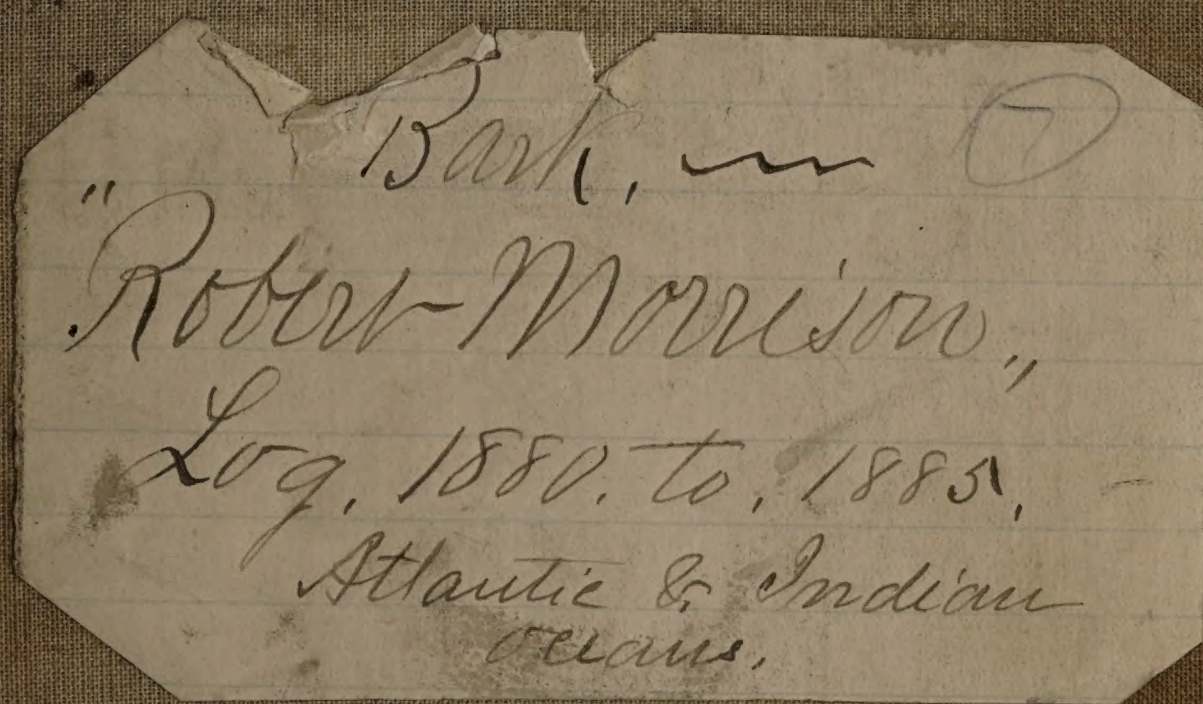 Bark, 7
"Robert Morrison„
Log, 1880. to, 1885,
Atlantic & Indian
oceans.